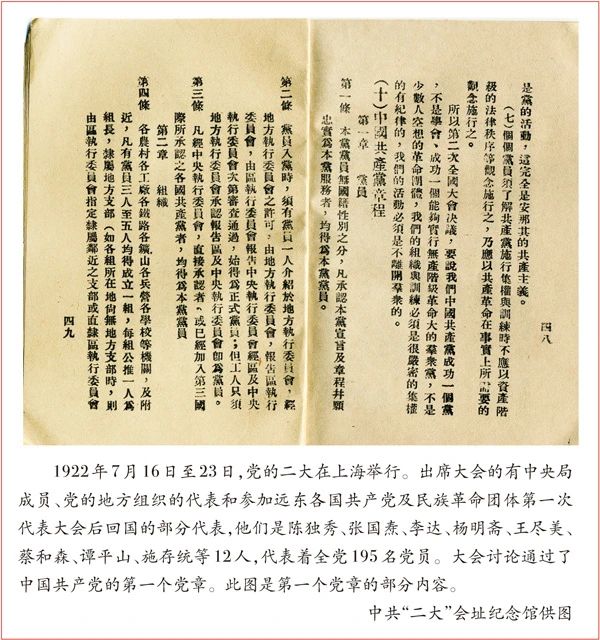 四八
是黨的活動，這完全是安那其的共產主義。
（七）個個黨員須了解共產黨施行集權與訓練時不應以資產階
級的法律秩序等觀念施行之，乃應以共產革命在事實上所需要的
觀念施行之。
所以第二次全國大會決議，要說我們中國共產黨成功一個黨
，不是學會、成功一個能夠實行無產階級革命大的羣衆黨，不是
少數人空想的革命團體，我們的組織與訓練必須是很嚴密的集權
的有紀律的，我們的活動必須是不離開羣衆的。
（十）中國共產黨章程
第一章 黨員
第一條 本黨黨員無國籍性別之分，凡承認本黨宣言及章程幷願
忠實爲本黨服務者，均得爲本黨黨員。
第二條 黨員入黨時，須有黨員一人介紹於地方執行委員會，經
地方執行委員會之許可，由地方執行委員會，報告區執行
委員會，由區執行委員會報告中央執行委員會經區及中央
執行委員會次第審查通過，始得爲正式黨員；但工人只須
地方執行委員會承認報告區及中央執行委員會卽爲黨員。
第三條 凡經中央執行委員會，直接承認者，或已經加入第三國
際所承認之各國共產黨者，均得爲本黨黨員
第二章 組織
第四條 各農村各工廠各鐵路各鑛山各兵營各學校等機關，及附
近，凡有黨員三人至五人均得成立一組，每組公推一人爲
組長，隸屬地方支部（如各組所在地尙無地方支部時，則
由區執行委員會指定隸屬鄰近之支部或直隸區執行委員會
四九
1922年7月16日至23日,党的二大在上海举行。出席大会的有中央局
成员、党的地方组织的代表和参加远东各国共产党及民族革命团体第一次
代表大会后回国的部分代表,他们是陈独秀、张国焘、李达、杨明斋、王尽美、
蔡和森、谭平山、施存统等12人,代表着全党195名党员。大会讨论通过了
中国共产党的第一个党章。此图是第一个党章的部分内容。
中共“二大”会址纪念馆供图